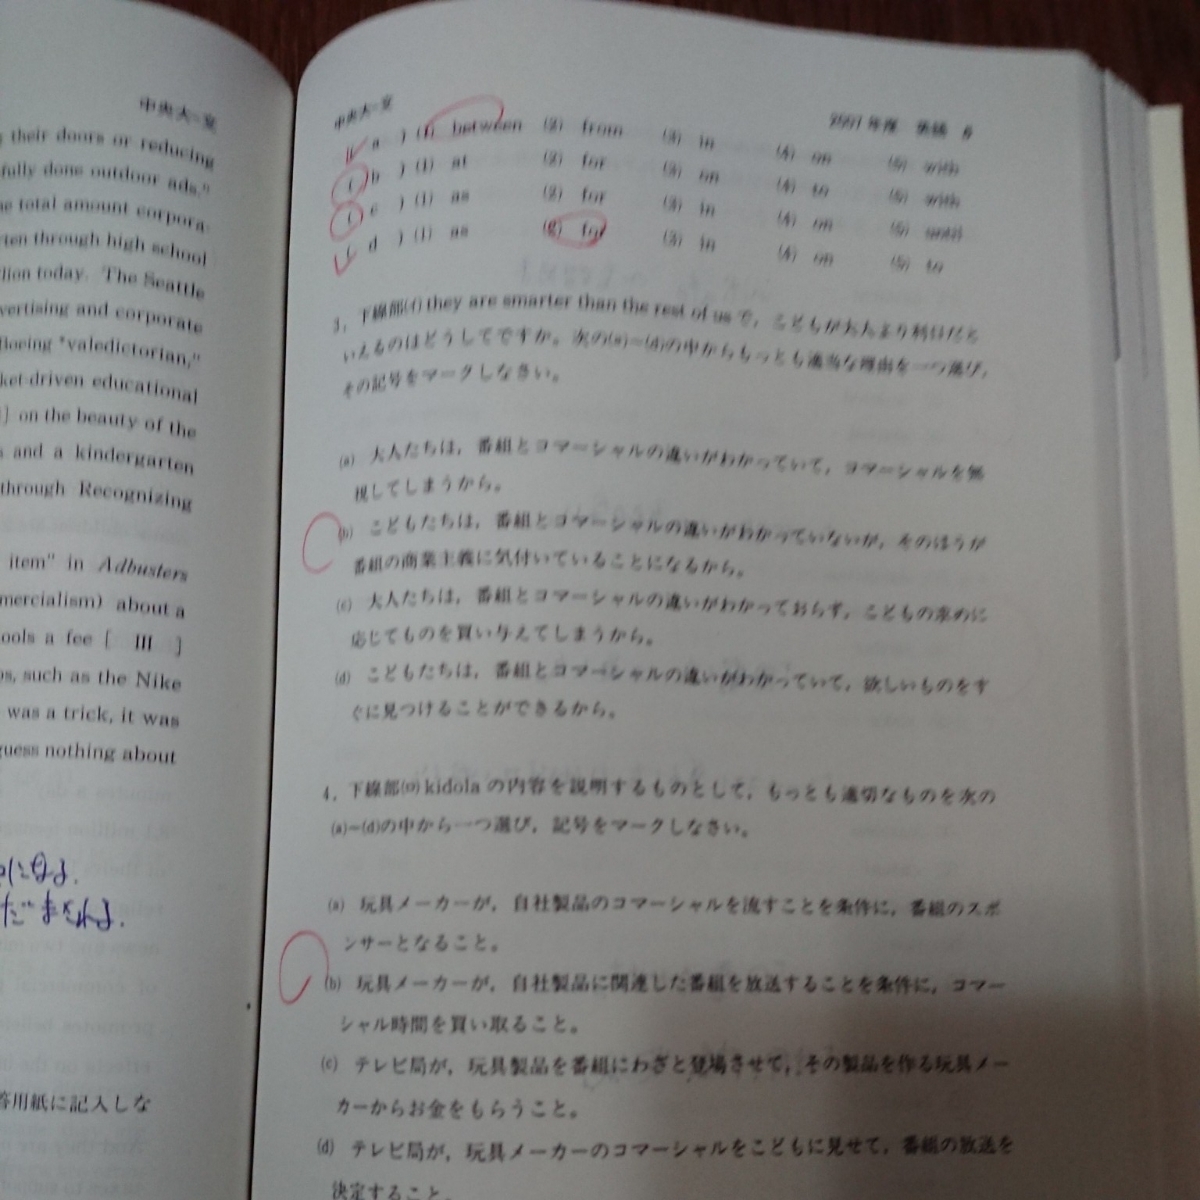 中央大-文
their doors or reducing
fully done outdoor ads,"
e total amount corpora-
ten through high school
lion today. The Seattle
vertising and corporate
Boeing "valedictorian,"
ket-driven educational
] on the beauty of the
s and a kindergarten
through Recognizing
item" in Adbusters
mercialism) about a
ools a fee [ III ]
os, such as the Nike
was a trick, it was
guess nothing about
になる.
だまされる.
答用紙に記入しな
中央大-文 2001年度 英語 5
( a ) (1) between (2) from (3) in (4) on (5) with
( b ) (1) at (2) for (3) on (4) to (5) with
( c ) (1) as (2) for (3) in (4) on (5) until
( d ) (1) as (2) for (3) in (4) on (5) to
3. 下線部(イ) they are smarter than the rest of us で, こどもが大人より利口だと
いえるのはどうしてですか。次の(a)~(d)の中からもっとも適当な理由を一つ選び,
その記号をマークしなさい。
(a) 大人たちは, 番組とコマーシャルの違いがわかっていて, コマーシャルを無
視してしまうから。
(b) こどもたちは, 番組とコマーシャルの違いがわかっていないが, そのほうが
番組の商業主義に気付いていることになるから。
(c) 大人たちは, 番組とコマーシャルの違いがわかっておらず, こどもの求めに
応じてものを買い与えてしまうから。
(d) こどもたちは, 番組とコマーシャルの違いがわかっていて, 欲しいものをす
ぐに見つけることができるから。
4. 下線部(ロ) kidola の内容を説明するものとして, もっとも適切なものを次の
(a)~(d)の中から一つ選び, 記号をマークしなさい。
(a) 玩具メーカーが, 自社製品のコマーシャルを流すことを条件に, 番組のスポ
ンサーとなること。
(b) 玩具メーカーが, 自社製品に関連した番組を放送することを条件に, コマー
シャル時間を買い取ること。
(c) テレビ局が, 玩具製品を番組にわざと登場させて, その製品を作る玩具メー
カーからお金をもらうこと。
(d) テレビ局が, 玩具メーカーのコマーシャルをこどもに見せて, 番組の放送を
決定すること。